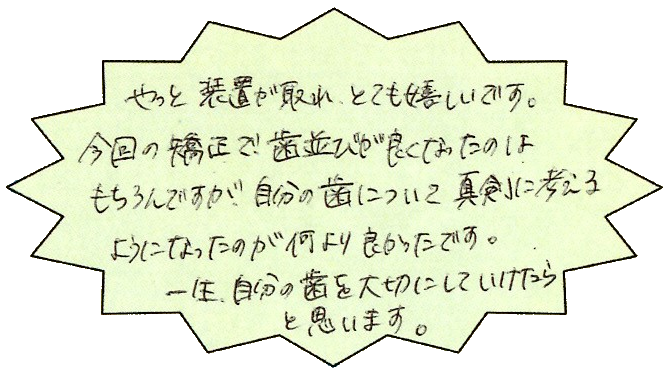 やっと装置が取れ、とても嬉しいです。
今回の矯正で歯並びが良くなったのは
もちろんですが、自分の歯について真剣に考える
ようになったのが何より良かったです。
一生、自分の歯を大切にしていけたら
と思います。